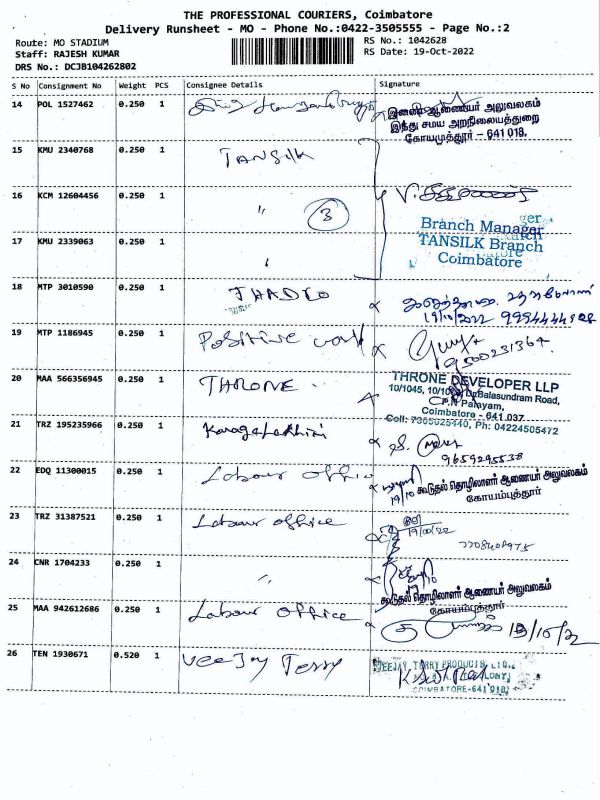 THE PROFESSIONAL COURIERS, Coimbatore
Delivery Runsheet - MO - Phone No.:0422-3505555 - Page No.:2
Route: MO STADIUM
Staff: RAJESH KUMAR
DRS No.: DCJB104262802
RS No.: 1042628
RS Date: 19-Oct-2022
S No Consignment No Weight PCS Consignee Details Signature
14 POL 1527462 0.250 1
இணை ஆணையர் அலுவலகம்
இந்து சமய அறநிலையத்துறை
கோயமுத்தூர் - 641 018.
15 KMU 2340768 0.250 1 TANSILK
16 KCM 12604456 0.250 1 〃 3
Branch Manager
TANSILK Branch
Coimbatore
17 KMU 2339063 0.250 1
18 MTP 3010590 0.250 1
19/10/2022
19 MTP 1186945 0.250 1 Positive
20 MAA 566356945 0.250 1 THRONE
THRONE DEVELOPER LLP
Balasundram Road,
P.N Palayam,
Coimbatore - 641 037
Ph: 04224505472
21 TRZ 195235966 0.250 1
9659295538
22 EDQ 11300015 0.250 1 Labour office
19/10
கூடுதல் தொழிலாளர் ஆணையர் அலுவலகம்
கோயம்புத்தூர்
23 TRZ 31387521 0.250 1 Labour office
24 CNR 1704233 0.250 1 〃
கூடுதல் தொழிலாளர் ஆணையர் அலுவலகம்
கோயம்புத்தூர்
25 MAA 942612686 0.250 1 Labour office
26 TEN 1930671 0.520 1 Veejay Terry
VEEJAY TERRY PRODUCTS LTD.,
COIMBATORE-641 018